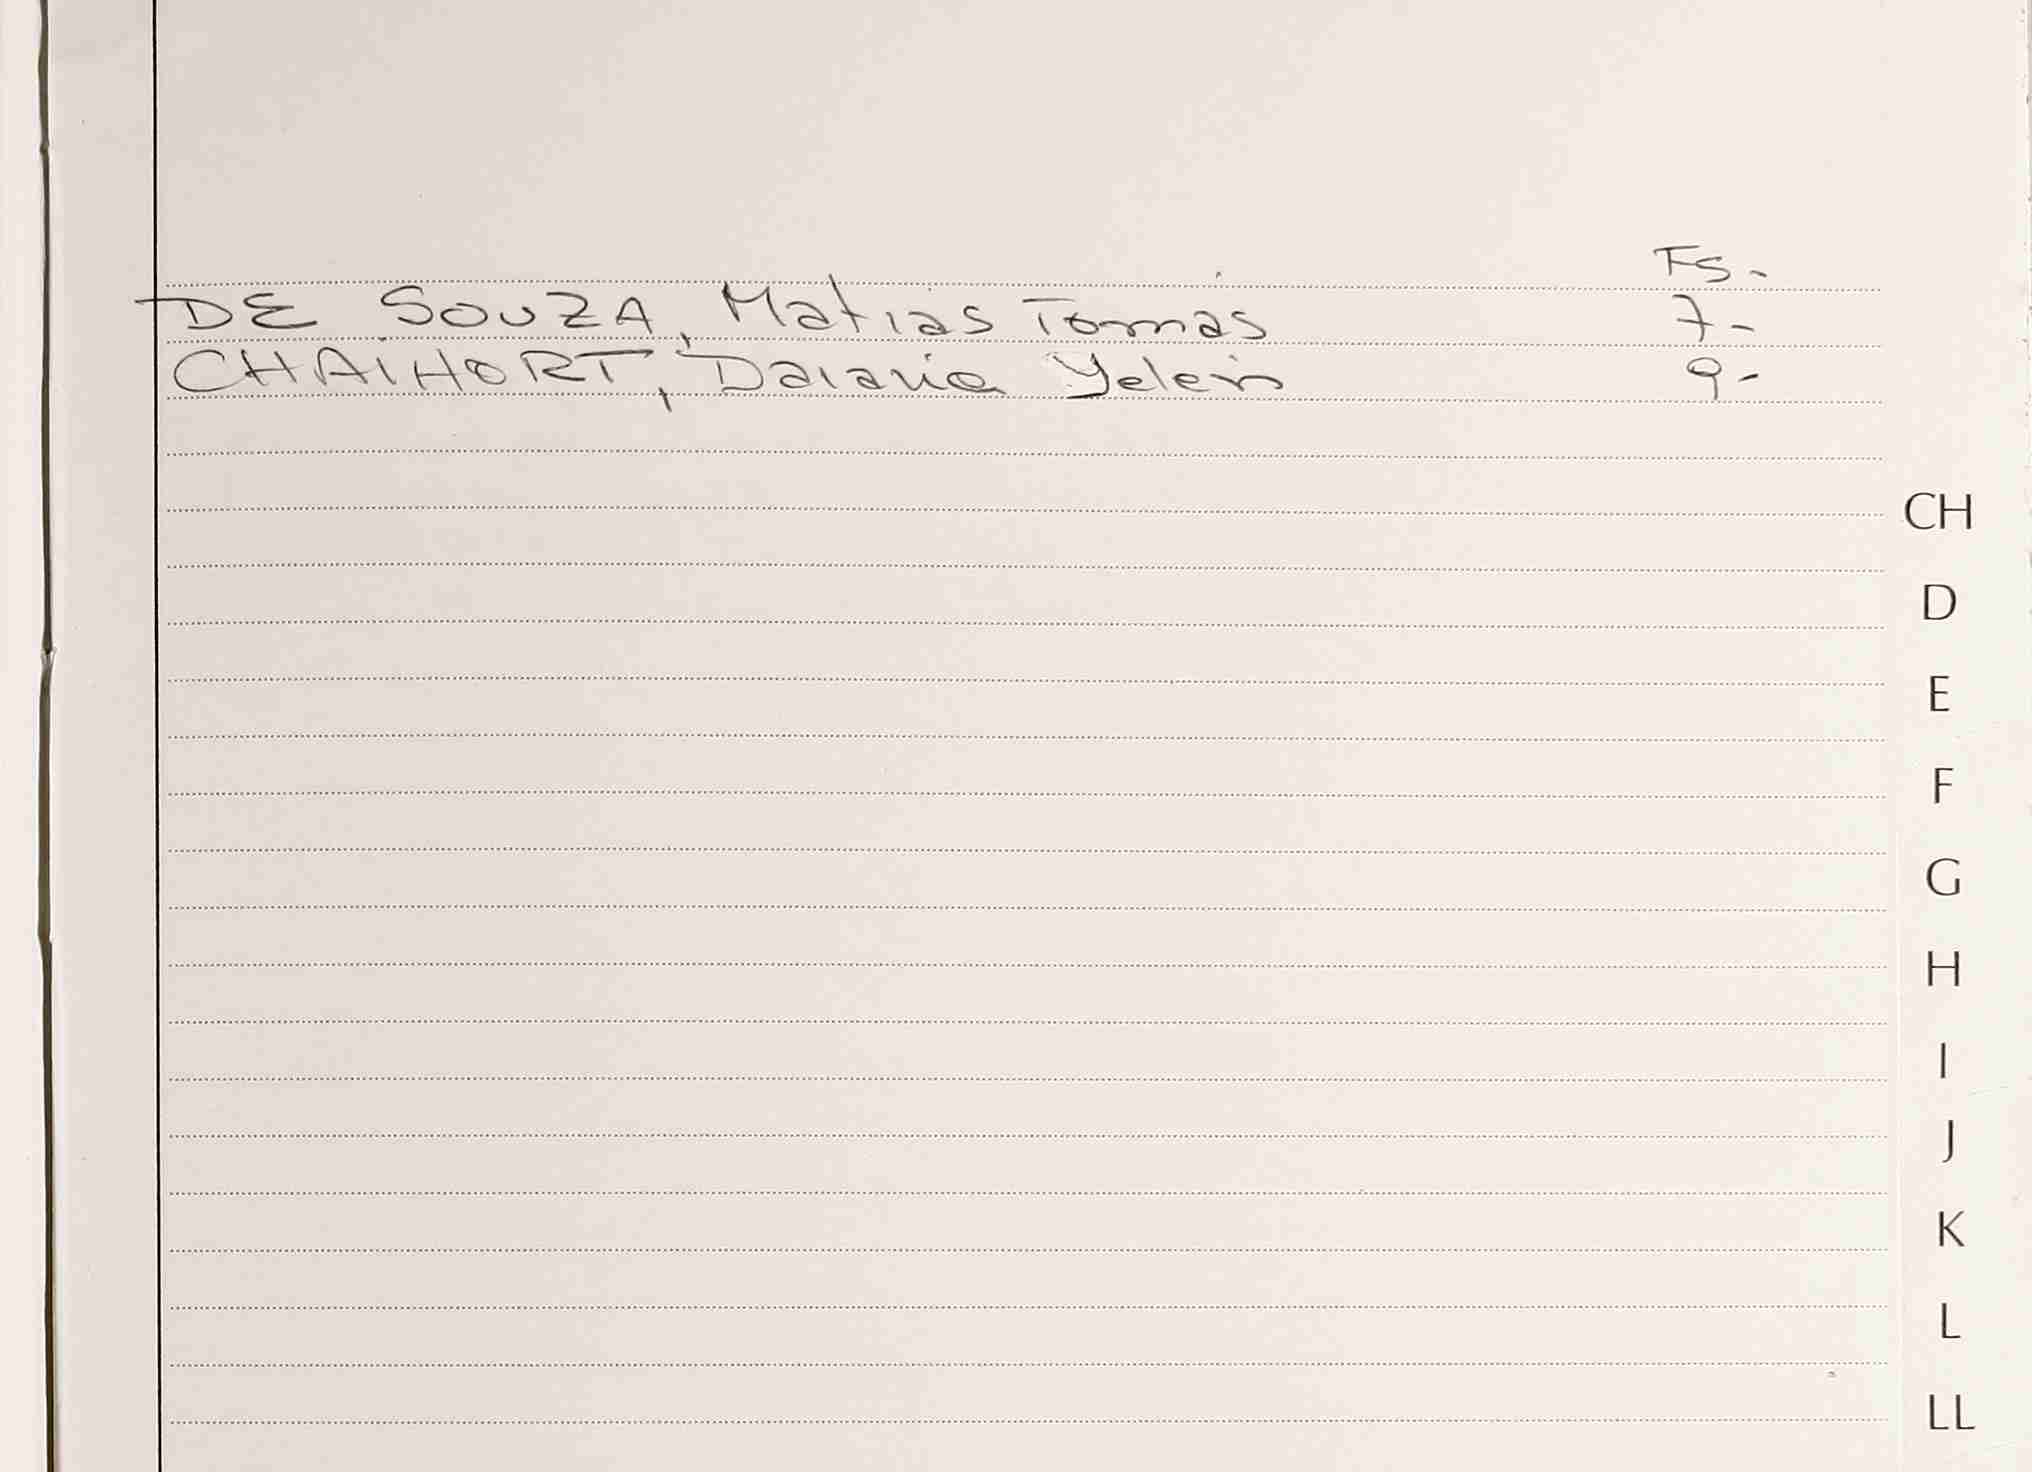 Fs-
DE SOUZA, Matias Tomás 7-
CHAIHORT, Daiana Yelein 9-
CH
D
E
F
G
H
I
J
K
L
LL